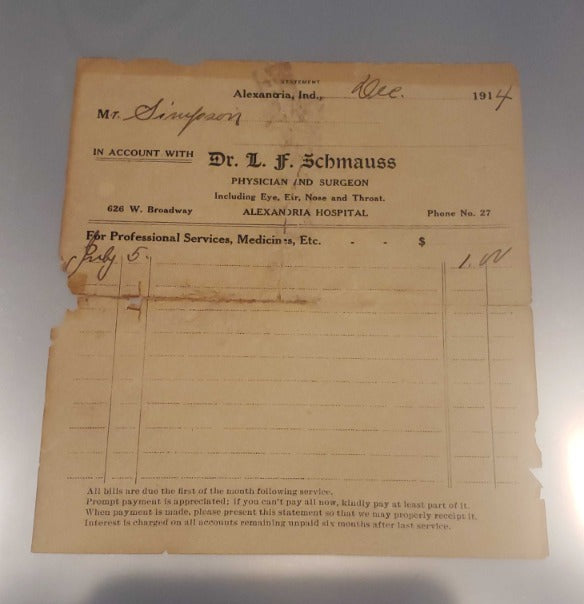 STATEMENT
Alexandria, Ind., Dec. 1914
Mr. Simpson
IN ACCOUNT WITH Dr. L. F. Schmauss
PHYSICIAN AND SURGEON
Including Eye, Ear, Nose and Throat.
626 W. Broadway ALEXANDRIA HOSPITAL Phone No. 27
For Professional Services, Medicines, Etc. - - $
July 5. 1.00
All bills are due the first of the month following service.
Prompt payment is appreciated; if you can't pay all now, kindly pay at least part of it.
When payment is made, please present this statement so that we may properly receipt it.
Interest is charged on all accounts remaining unpaid six months after last service.